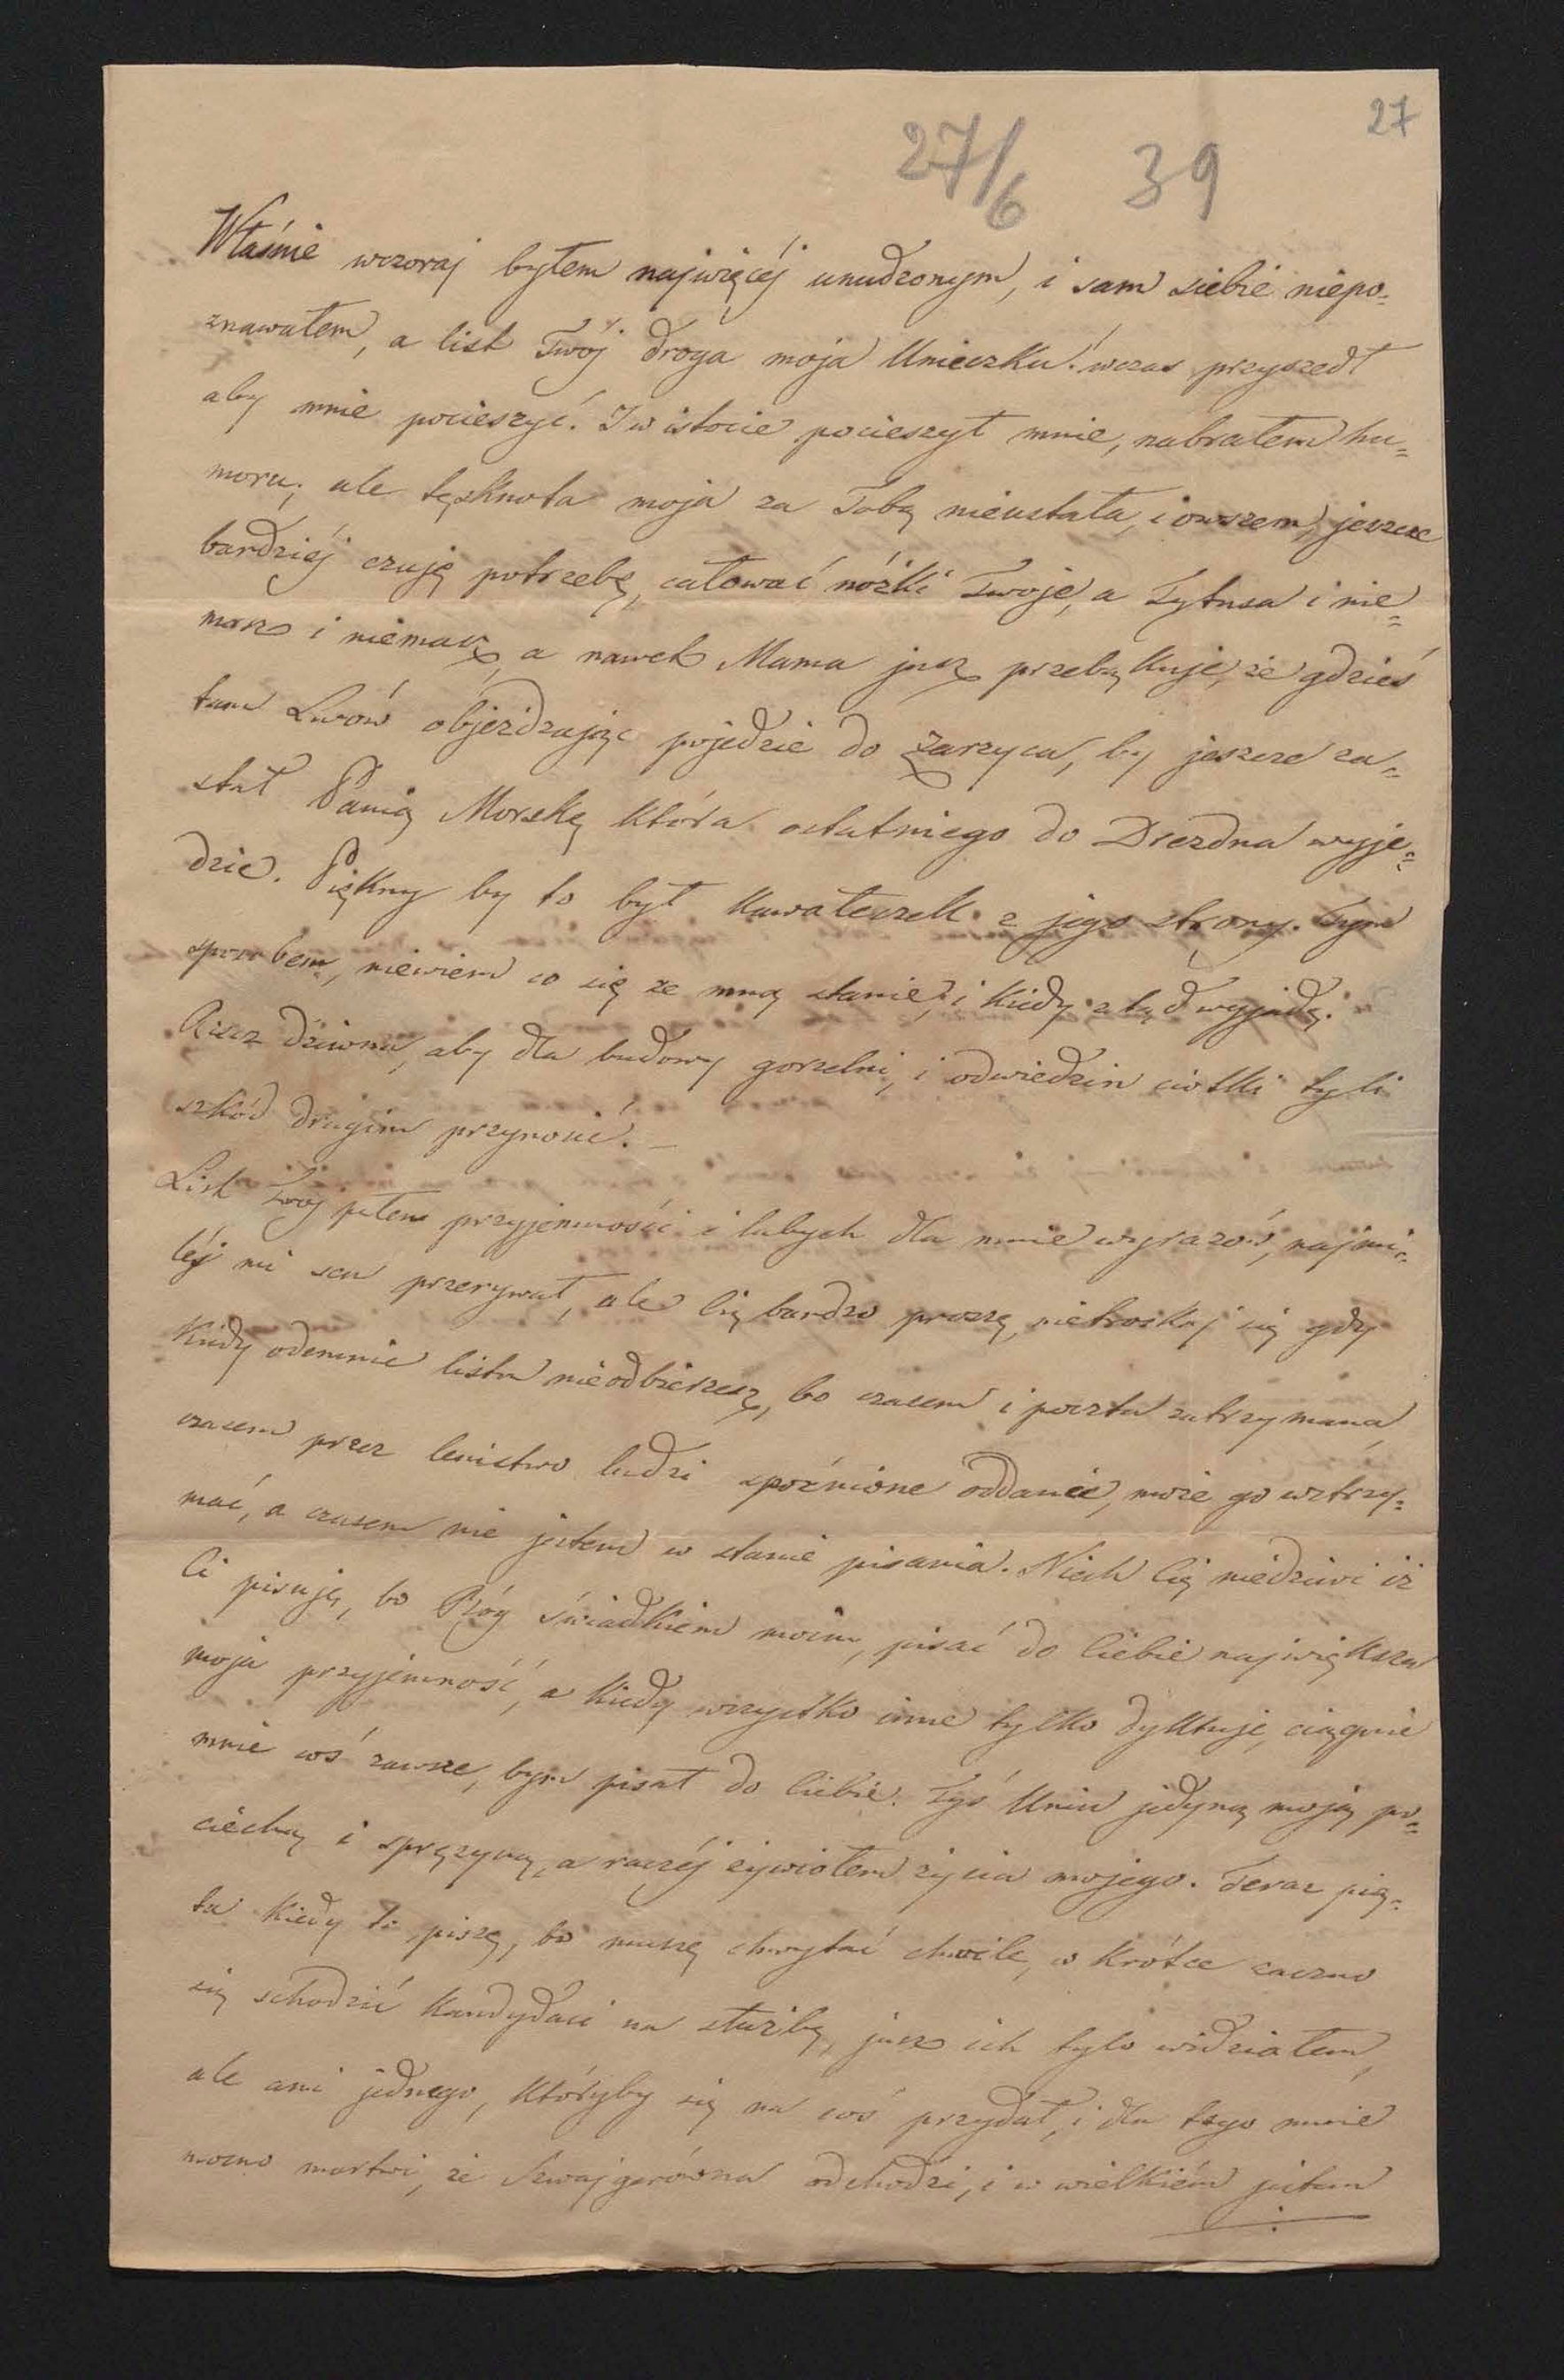 27
27/6 39
Właśnie wczoraj byłem najwięcéj unudzonym, i sam siebie niepo-
znawałem, a list Twój droga moja Unieczku! wczas przyszedł
aby mnie pocieszyć. I w istocie pocieszył mnie, nabrałem hu=
moru; ale tęsknota moja za Tobą nieustała, i owszem, jeszcze
bardziéj czuję potrzebę, całować nóżki Twoje, a Tytusa i nie=
masz i niemasz, a nawet Mama jusz przebąkuje, że gdzieś
tam Lwów objeżdzając pojedzie do Zarzyca, by jeszcze za=
stał Panią Morską która ostatniego do Drezdna wyje=
dzie. Piękny by to był kawałeczek z jego strony. Tym
sposobem, niewiem co się ze mną stanie, i kiedy ztąd wyjadę.
Rzecz dziwna, aby dla budowy gorzelni, i odwiedzin ciotki tyli
szkód drugim przynosić. —
List Twoj pełem przyjemności i lubych dla mnie wyrazów, najmi=
léj mi sen przerywał, ale Cię bardzo proszę, nietroskaj się gdy
kiedy odemnie listu nieodbierzesz, bo czasem i poczta zatrzymana,
czasem przez lenistwo ludzi spoźnione oddanie, może go wstrzy=
mać, a czasem nie jestem w stanie pisania. Niech Cię niedziwi iż
Ci pisuję, bo Bóg świadkiem moim, pisać do Ciebie największa
moja przyjemność, a kiedy wszystko inne tylko dyktuję, ciągnie
mnie coś zawsze, bym pisał do Ciebie. Tyś Uniu jedyną moją po=
ciechą i sprężyną, a raczéj żywiołem życia mojego. Teraz pią=
ta kiedy to piszę, bo muszę chwytać chwile, w krótce zaczno
się schodzić kandydaci na służbę, jusz ich tylo widziałem,
ale ani jednego, któryby się na coś przydał, i dla tego mnie
mocno martwi, że Szwajgerówna odchodzi, i w wielkiém jestem